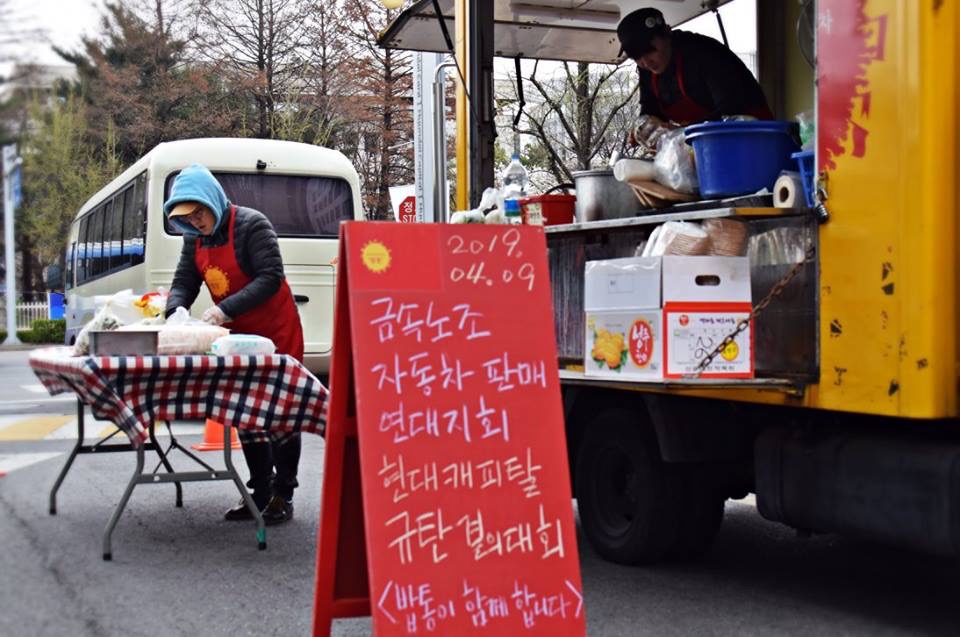 2019.
04.09
금속노조
자동차 판매
연대지회
현대캐피탈
규탄 결의대회
<밥통이 함께 합니다>
STOP